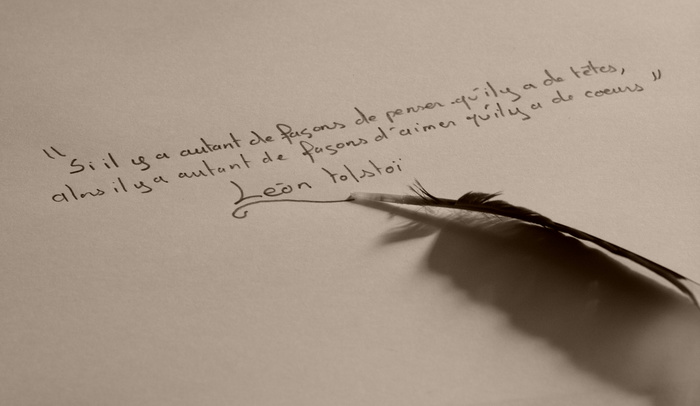 "Si il y a autant de façons de penser qu'il y a de têtes,
alors il y a autant de façons d'aimer qu'il y a de coeurs"
Leon Tolstoï